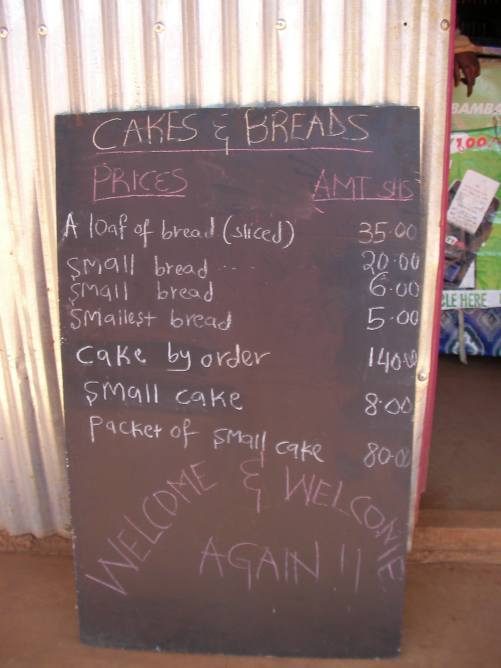 CAKES & BREADS
PRICES AMT SHS
A loaf of bread (sliced) 35.00
Small bread .... 20.00
Small bread 6.00
Smallest bread 5.00
Cake by order 140.00
Small cake 8.00
Packet of small cake 80.00
WELCOME & WELCOME
AGAIN !!
BAMB
100
LE HERE